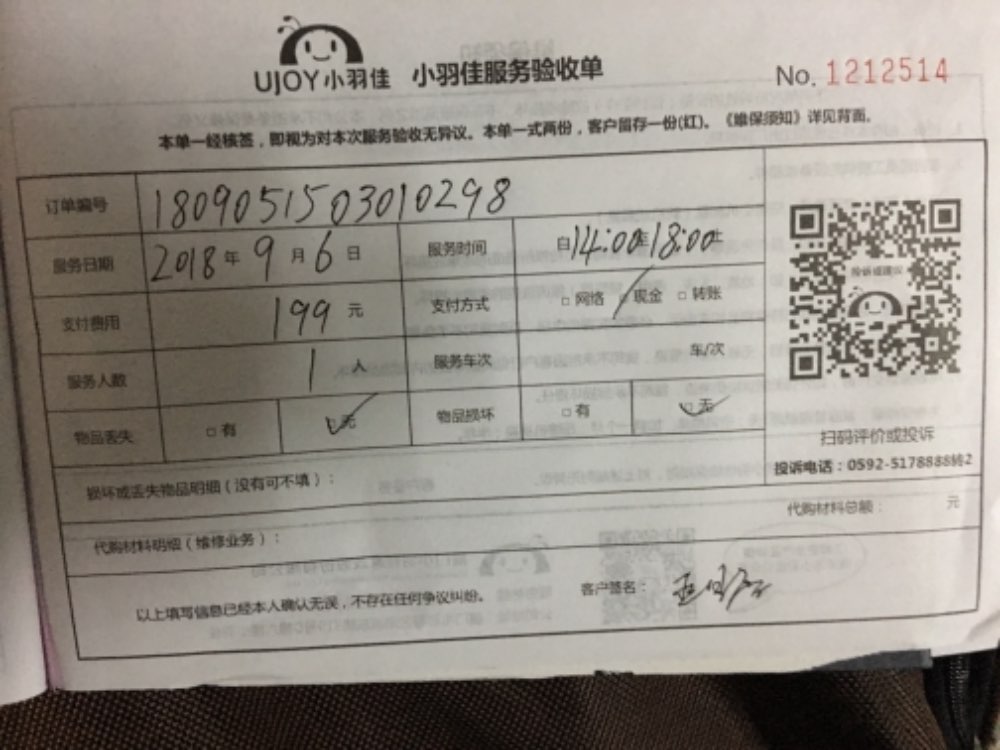 UJOY小羽佳 小羽佳服务验收单
No. 1212514
本单一经核签，即视为对本次服务验收无异议。本单一式两份，客户留存一份(红)。《维保须知》详见背面。
订单编号 1809051503010298
服务日期 2018年9月6日 服务时间 自14:00至18:00止
支付费用 199元 支付方式 □网络 ✓现金 □转账
服务人数 1人 服务车次 车/次
物品丢失 □有 ✓无 物品损坏 □有 ✓无
投诉或建议
扫码评价或投诉
投诉电话：0592-5178888转2
损坏或丢失物品明细（没有可不填）：
代购材料明细（维修业务）： 代购材料总额： 元
以上填写信息已经本人确认无误，不存在任何争议纠纷。 客户签名：